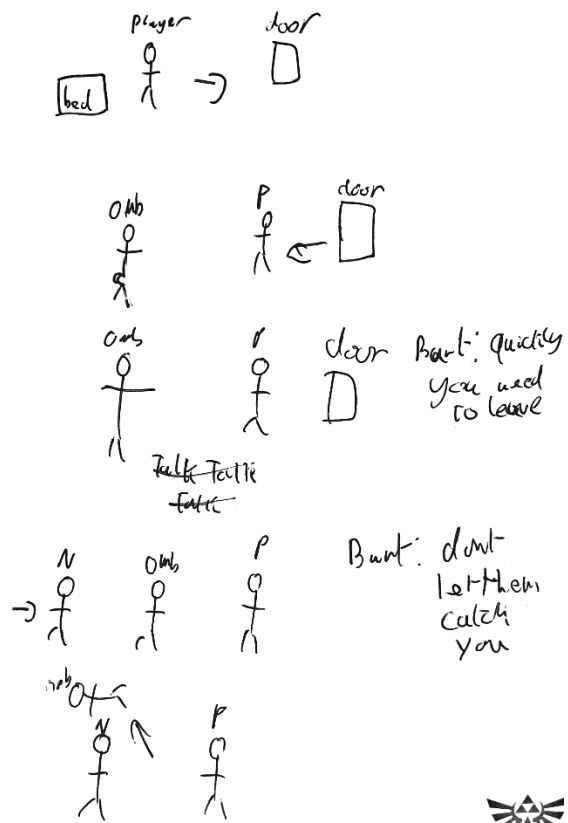 player
door
bed
Omb
P
door
Omb
P
door
Bart: quickily
you need
to leave
Talk Talk
Talk
N
Omb
P
Bart: dont
let them
catch
you
N
P